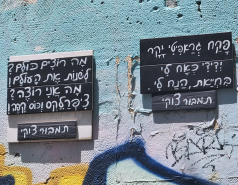 מה רוצים כולם?
לשנות את העולם!
מה אני רוצה?
צ'יפרלקס וכוס קפה!
תמבור צוקי
פקח גראפיטי יקר
ידיד כאח לי.
בחייאת, הנח לי.
תמבור צוקי